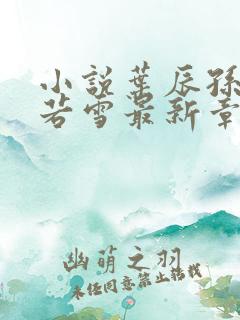 小说叶辰孙
若雪最新章
幽萌之羽
未经同意禁止转载